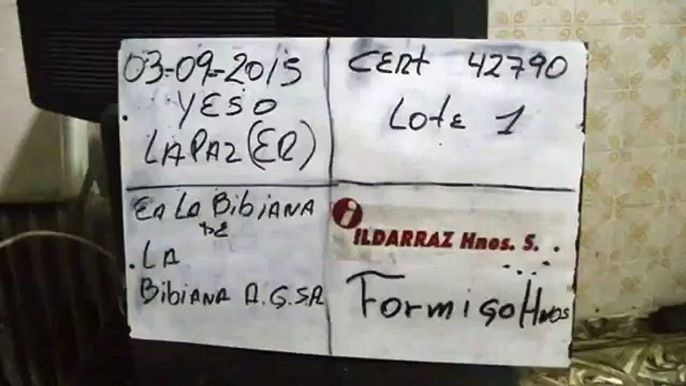 03-09-2015
YESO
LA PAZ (ER)
CERT 42790
Lote 1
EA LA BibiANA
DE
. LA
BibiANA A.G.SA
i
ILDARRAZ Hnos. S.
Formigo Hnos